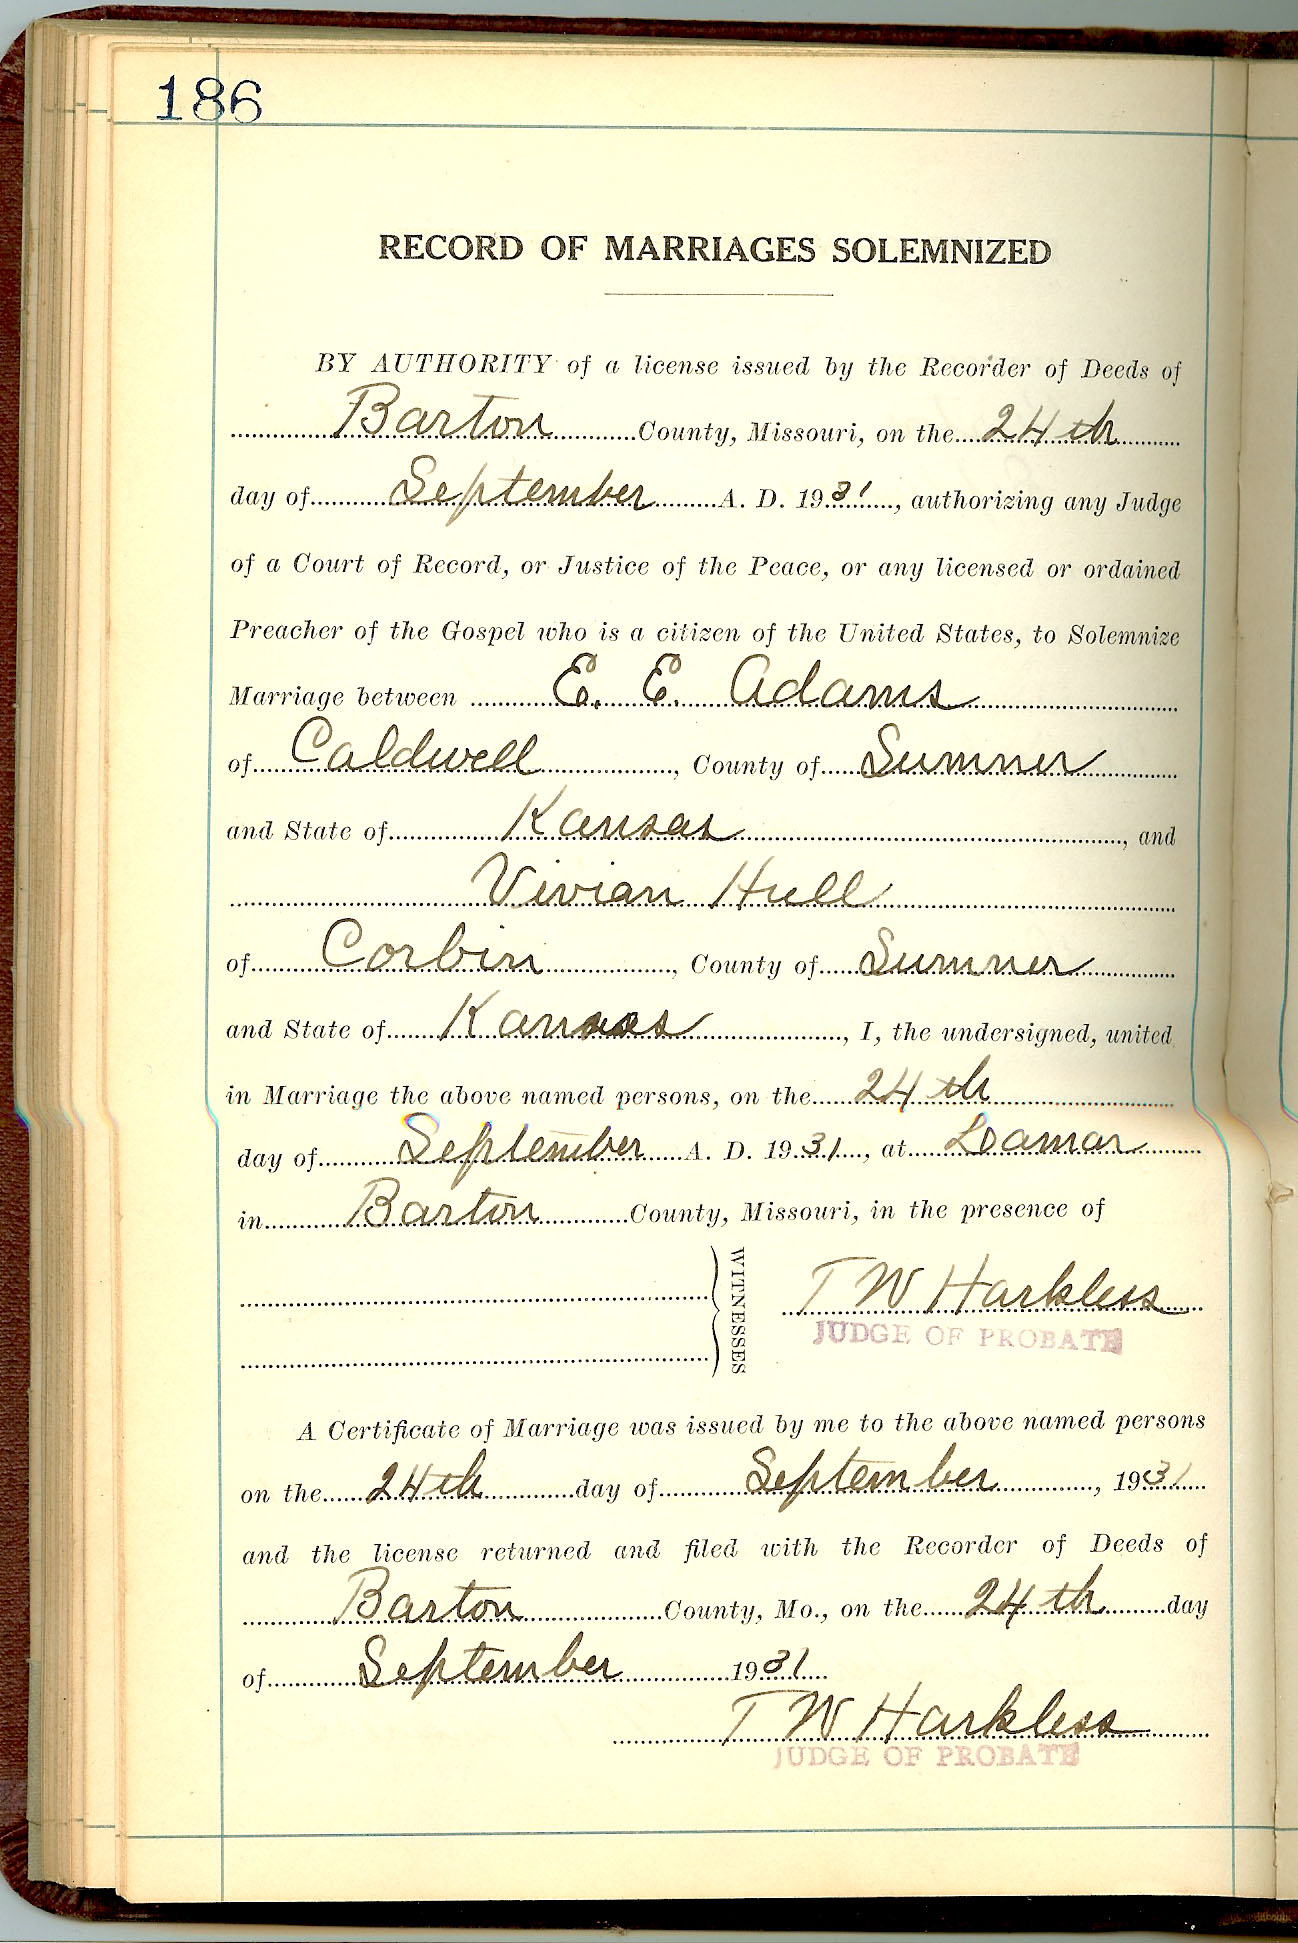 186
RECORD OF MARRIAGES SOLEMNIZED
BY AUTHORITY of a license issued by the Recorder of Deeds of
Barton County, Missouri, on the 24th
day of September A. D. 1931, authorizing any Judge
of a Court of Record, or Justice of the Peace, or any licensed or ordained
Preacher of the Gospel who is a citizen of the United States, to Solemnize
Marriage between E. E. Adams
of Caldwell, County of Sumner
and State of Kansas, and
Vivian Hull
of Corbin, County of Sumner
and State of Kansas, I, the undersigned, united
in Marriage the above named persons, on the 24th
day of September A. D. 1931, at Lamar
in Barton County, Missouri, in the presence of
WITNESSES
T W Harkless
JUDGE OF PROBATE
A Certificate of Marriage was issued by me to the above named persons
on the 24th day of September, 1931
and the license returned and filed with the Recorder of Deeds of
Barton County, Mo., on the 24th day
of September 1931
T W Harkless
JUDGE OF PROBATE